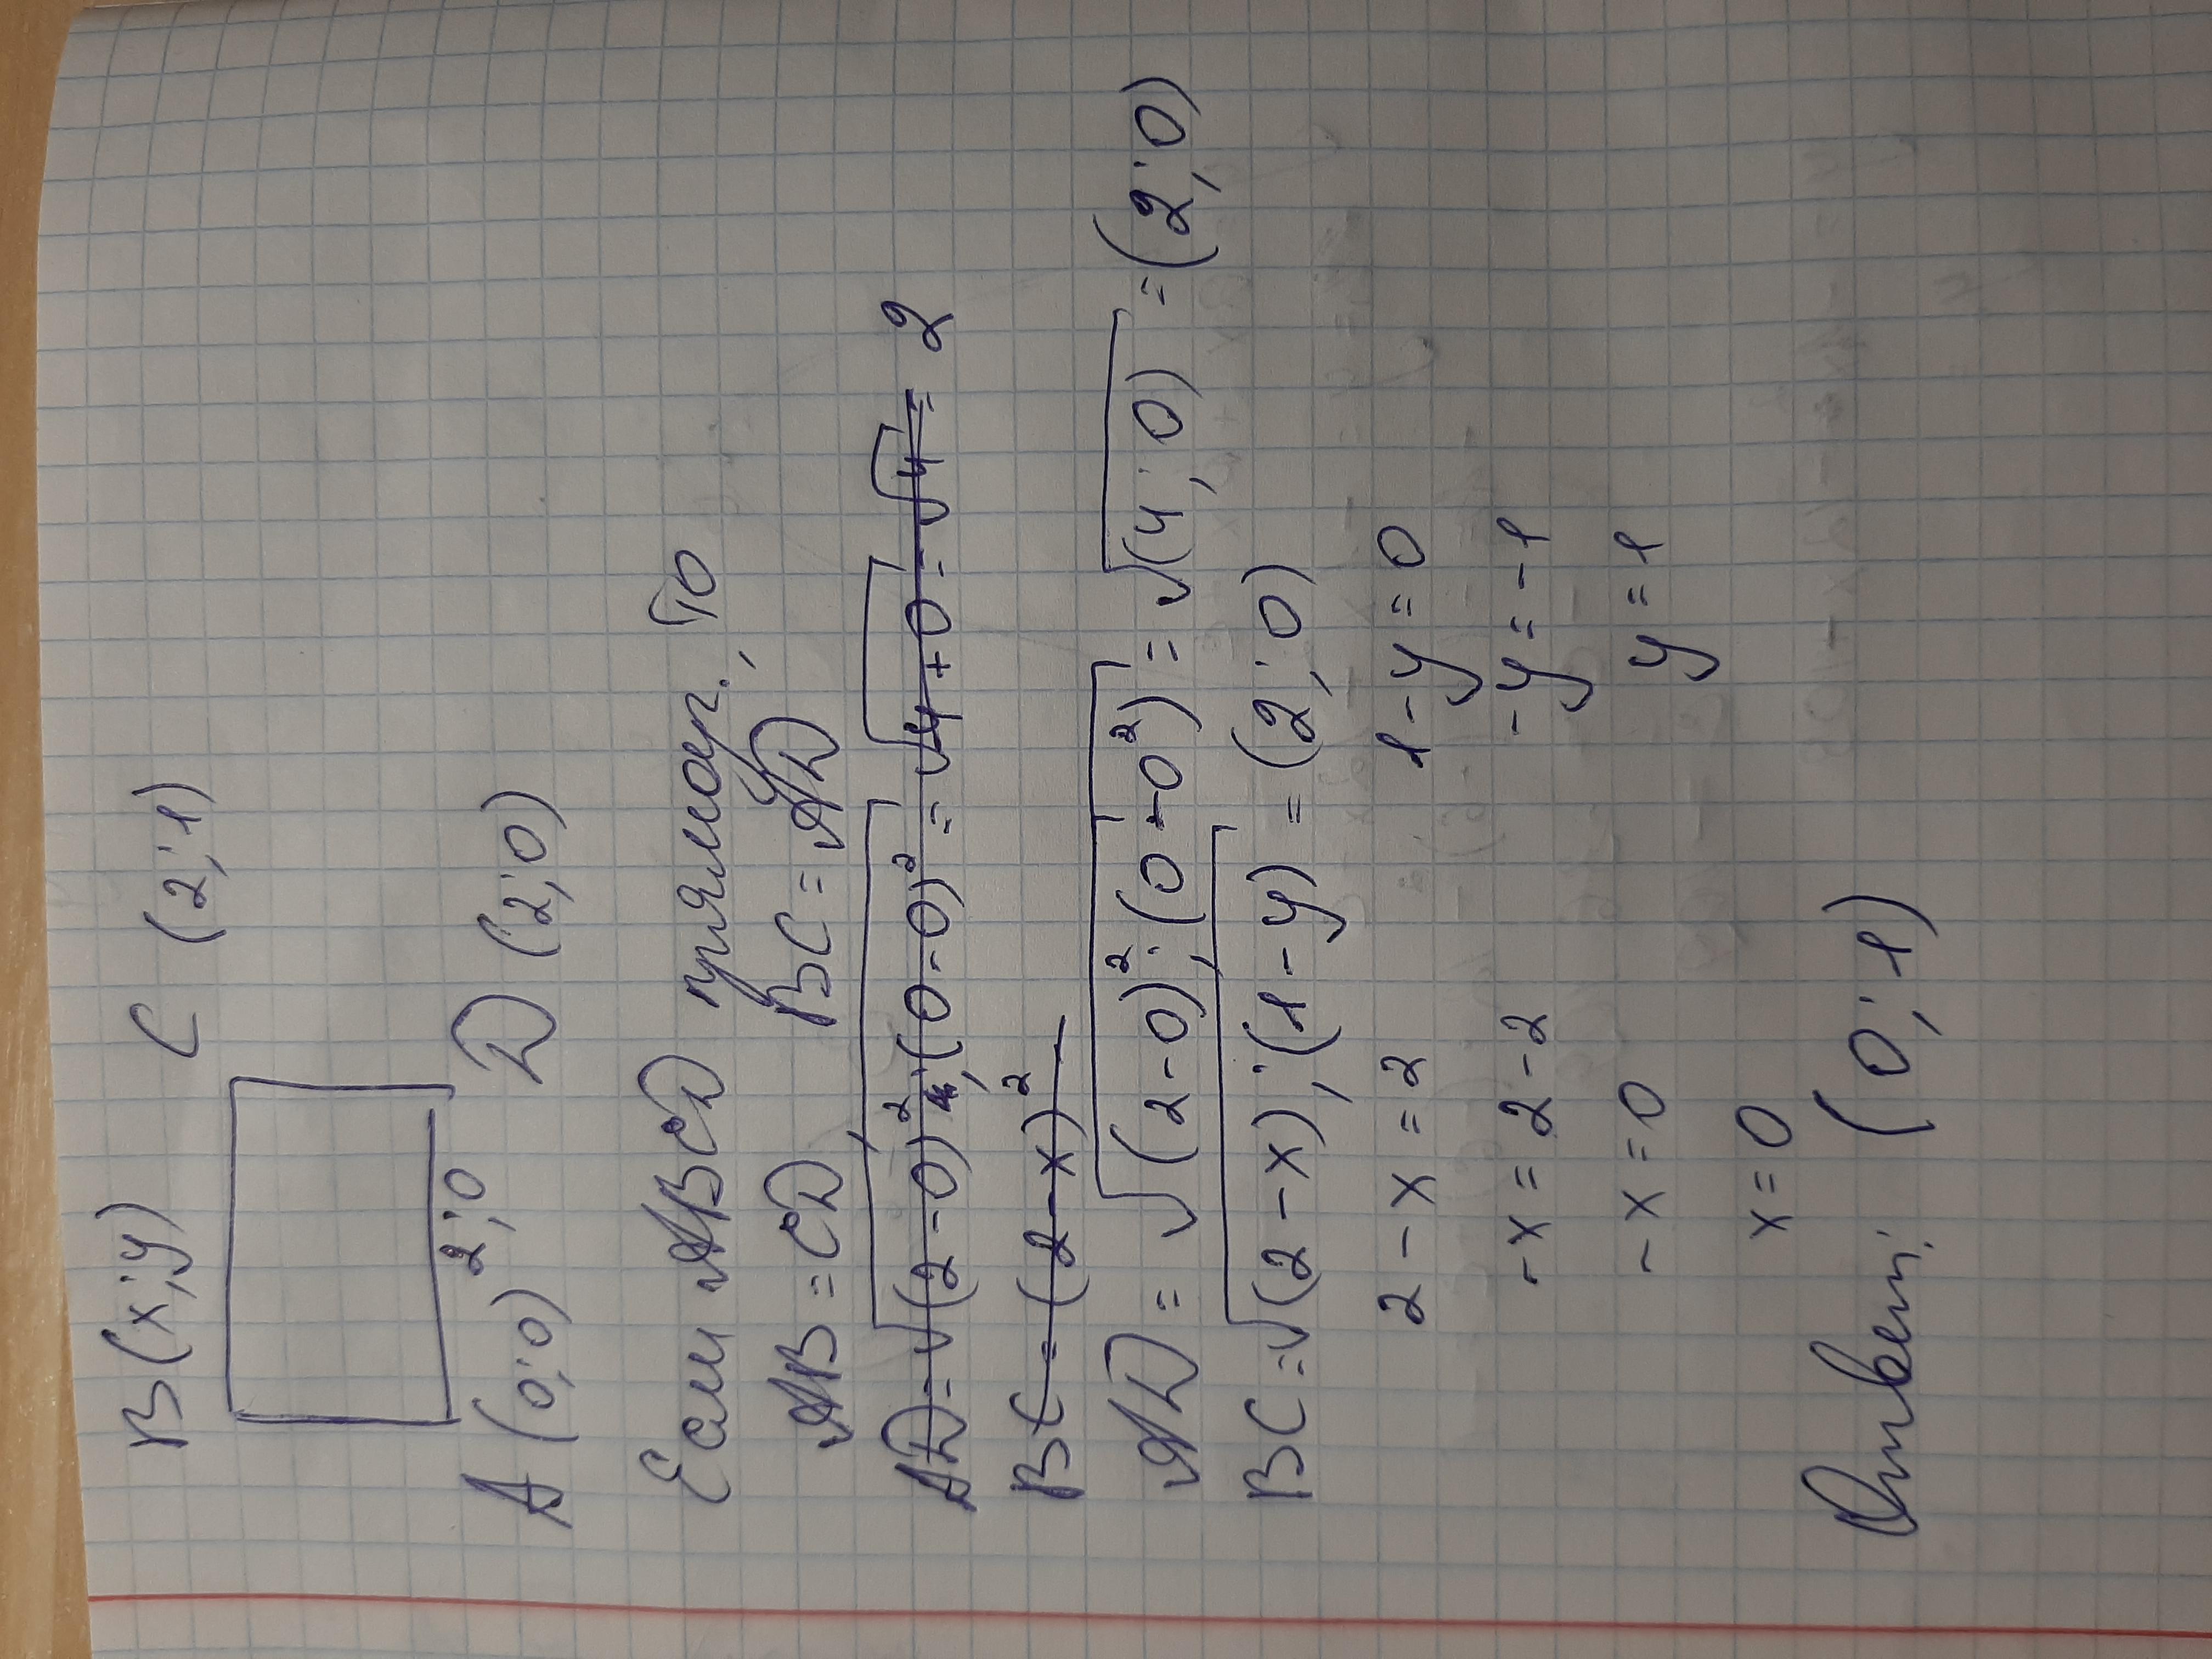 B(x;y) C (2;1)
A (0;0) 2;0 D (2;0)
Если ABCD прямоуг., то
AB=CD BC=AD
AD=√(2-0)²;(0-0)² = √4+0 = √4 = 2
BC = (2-x)²
AD = √(2-0)²;(0-0²) = √(4;0) = (2;0)
BC=√(2-x);(1-y) = (2;0)
2-x=2 1-y=0
-x=2-2 -y=-1
-x=0 y=1
x=0
Ответ: (0;1)